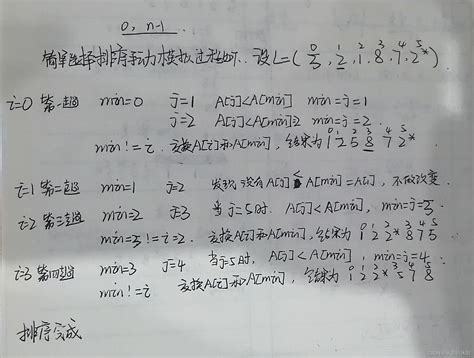 0, n-1
简单选择排序手动模拟过程如下. 设L=(5, 2, 1, 8, 7, 2*)
0 1 2 3 4 5
i=0 第一趟 min=0 j=1 A[j]<A[min] min=j=1
j=2 A[j]<A[min]2 min=j=2.
min!=i. 交换A[i]和A[min], 结果为 1 2 5 8 7 2*
i=1 第二趟 min=1 j=2 发现没有A[j]<A[min]=A[i], 不做改变.
i=2 第三趟 min=2 j=3 当j=5时. A[j]<A[min], min=j=5
min=5!=i=2. 交换A[i]和A[min], 结果为 1 2 2* 8 7 5
i=3 第四趟 min=3 j=4 当j=5时, A[j]<A[min], min=j=4;
min!=i 交换A[i]和A[min], 结果为 1 2 2* 5 7 8
排序完成